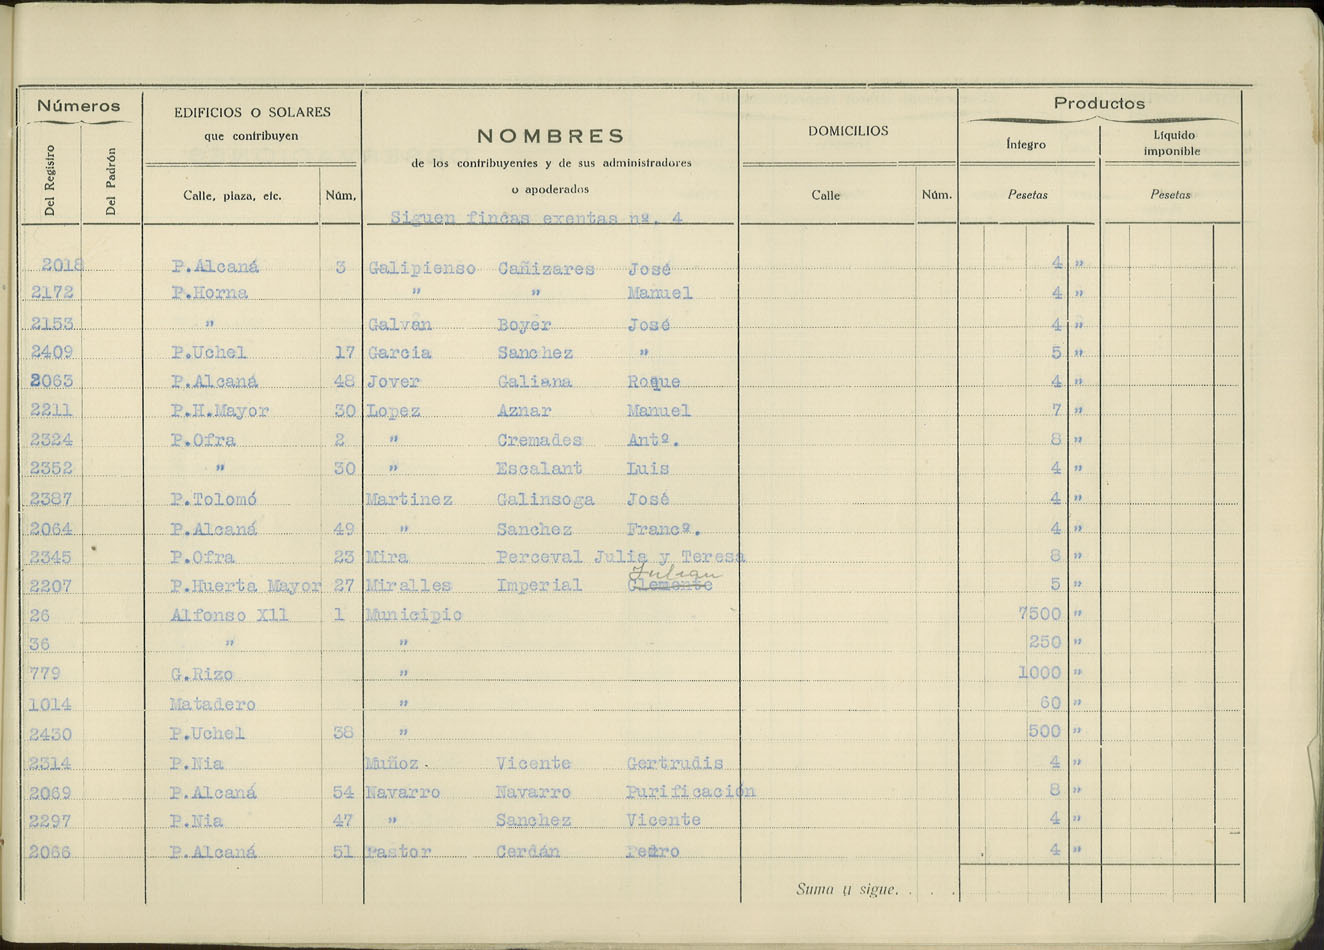 Números
EDIFICIOS O SOLARES
que contribuyen
NOMBRES
de los contribuyentes y de sus administradores
o apoderados
DOMICILIOS
Productos
Íntegro
Líquido
imponible
Del Registro
Del Padrón
Calle, plaza, etc.
Núm,
Calle
Núm.
Pesetas
Pesetas
Siguen fincas exentas nº. 4
2018 P.Alcaná 3 Galipienso Cañizares José 4 "
2172 P.Horna " " Manuel 4 "
2153 " Galvan Boyer José 4 "
2409 P.Uchel 17 Garcia Sanchez " 5 "
2063 P.Alcaná 48 Jover Galiana Roque 4 "
2211 P.H.Mayor 30 Lopez Aznar Manuel 7 "
2324 P.Ofra 2 " Cremades Antº. 8 "
2352 " 30 " Escalant Luis 4 "
2387 P.Tolomó Martinez Galinsoga José 4 "
2064 P.Alcaná 49 " Sanchez Francº. 4 "
2345 P.Ofra 23 Mira Perceval Julia y Teresa 8 "
Julian
2207 P.Huerta Mayor 27 Miralles Imperial Clemente 5 "
26 Alfonso Xll 1 Municipio 7500 "
36 " " 250 "
779 G.Rizo " 1000 "
1014 Matadero " 60 "
2430 P.Uchel 38 " 500 "
2314 P.Nia Muñoz. Vicente Gertrudis 4 "
2069 P.Alcaná 54 Navarro Navarro Purificación 8 "
2297 P.Nia 47 " Sanchez Vicente 4 "
2066 P.Alcaná 51 Pastor Cerdán Pedro 4 "
Suma y sigue. . . .